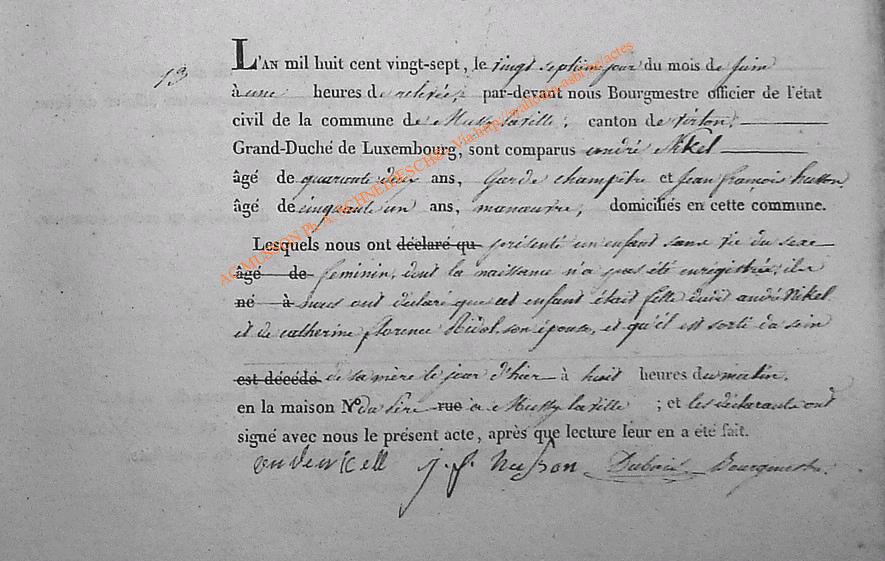 13
L'AN mil huit cent vingt-sept, le vingt septieme jour du mois de juin
à une heures de relevée, par-devant nous Bourgmestre officier de l'état
civil de la commune de Mussy la ville, canton de virton,
Grand-Duché de Luxembourg, sont comparus andré Nikel
âgé de quarante deux ans, Garde champêtre et Jean françois husson,
âgé de cinquante un ans, manœuvre, domiciliés en cette commune.
Lesquels nous ont déclaré qu présenté un enfant sans vie du sexe
âgé de feminin, dont la naissance n'a pas été enrégistrée; ils
né à nous ont déclaré que cet enfant était fille dudit andré Nikel
et de catherine florence son épouse, et qu'il est sorti du sein
est décédé de sa mère le jour d'hier à huit heures du matin,
en la maison N° du père rue à Mussy la ville ; et les déclarants ont
signé avec nous le présent acte, après que lecture leur en a été fait.
j. f. husson Bourgmestre
AG MUSSON Ph. & A. SCHNEIDESCH & Via http://